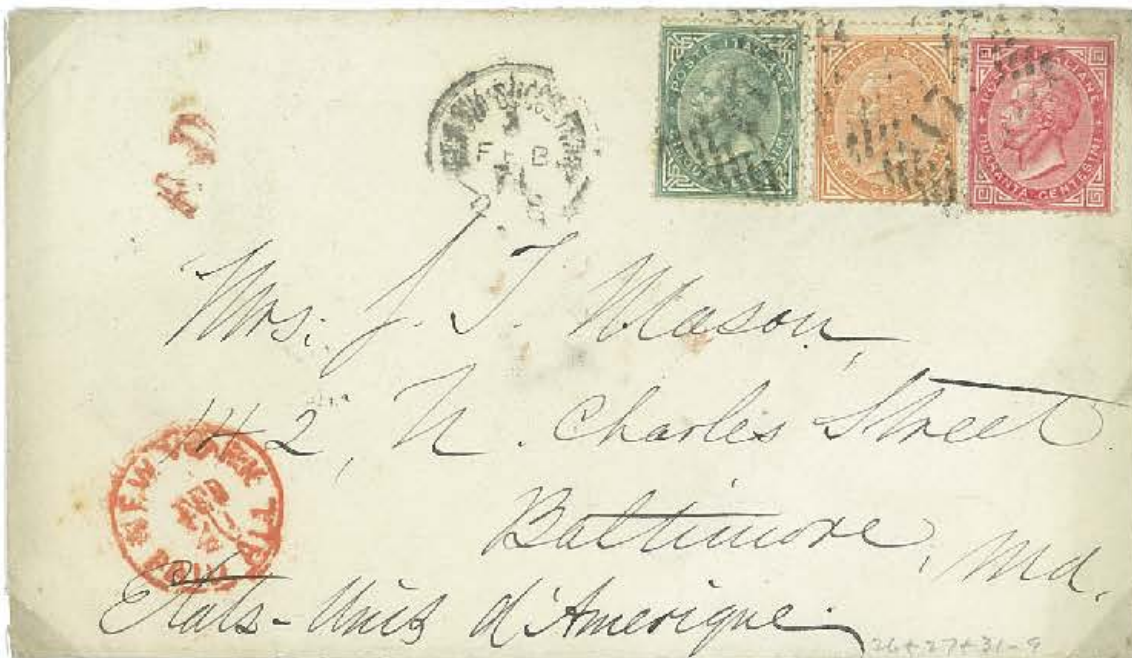 POSTE ITALIANE
DIECI CENTESIMI
POSTE ITALIANE
QUARANTA CENTESIMI
FEB
71
P.D.
Mrs. J. T. Mason,
142, N. Charles Street
Baltimore, Md.
Etats-Unis d'Amerique.
NEW YORK
PAID
26+27+31-9